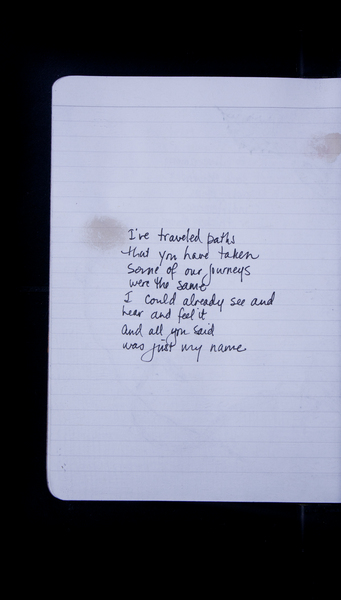 I've traveled paths
that you have taken
Some of our journeys
were the same
I could already see and
hear and feel it
and all you said
was just my name